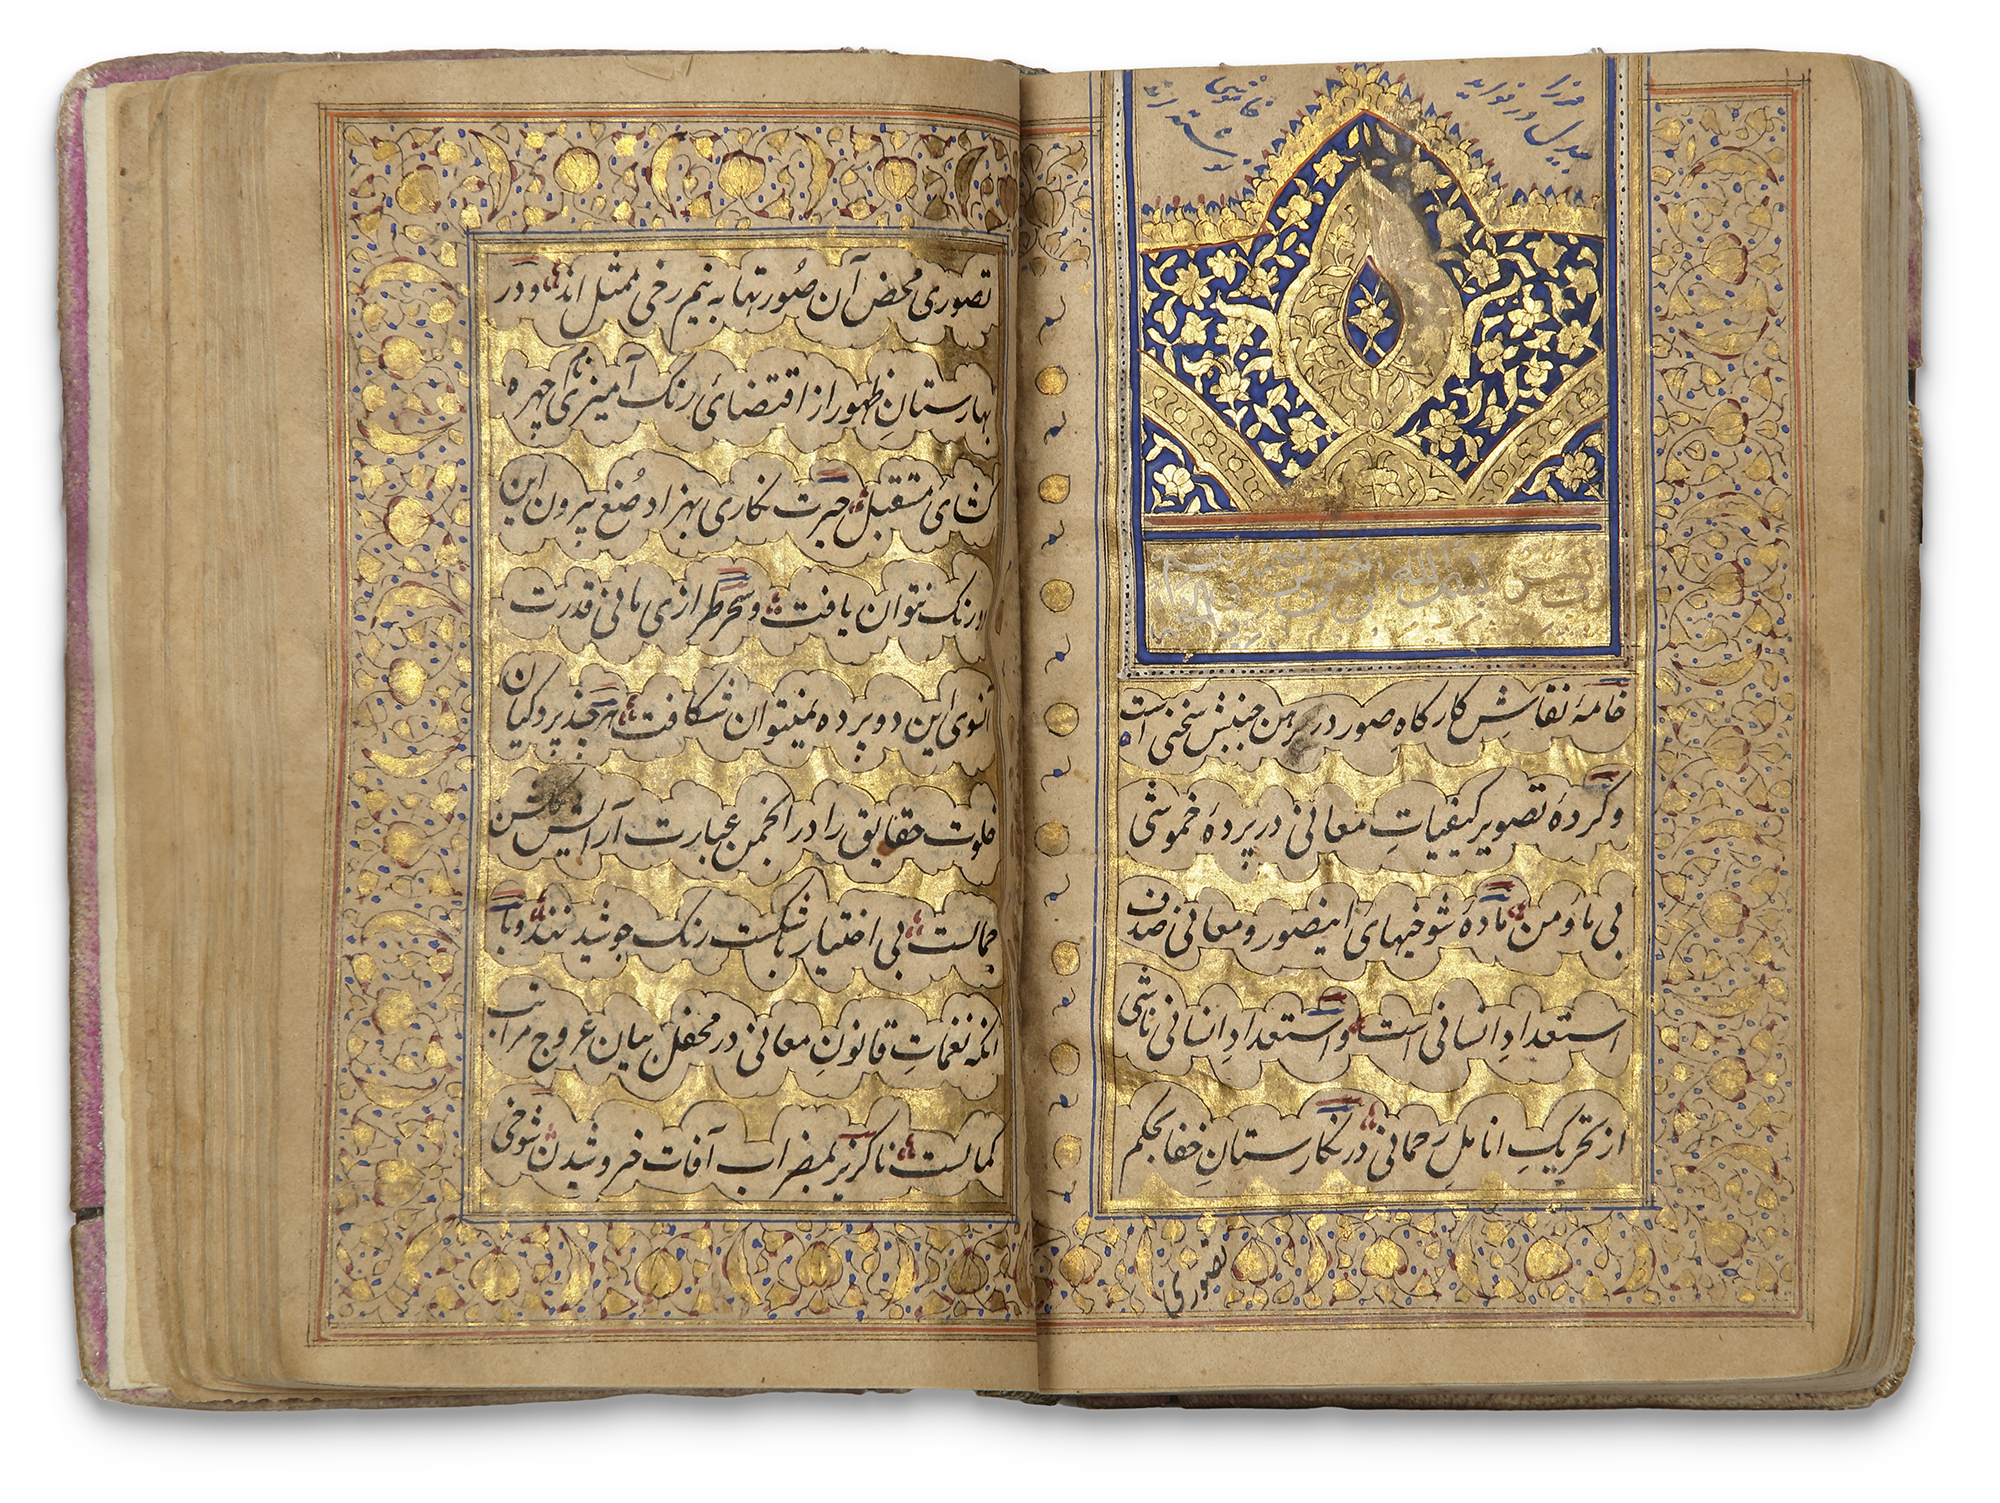 مرزا
بیدل در فواید
خاموشی
نوشته اند
بسم الله الرحمن الرحیم
خامهٔ نقاش کارگاهِ صور در رهن جنبش سخنی است
و گردهٔ تصویر کیفیاتِ معانی در پردهٔ خموشی
بی ما و من مادهٔ شوخیهای اینصور و معانی صدف
استعدادِ انسانی است و استعدادِ انسانی ناشی
از تحریکِ اناملِ رحمانی در نگارستانِ خفا بحکم
تصوری
تصوری محض آن صورتها به نیم رخی ممثل اند و در
بهارستانِ ظهور از اقتضای رنگ آمیزی نام چهره
کشای مستقبل حیرت نگاری بهزاد صُنع بیرون این
دو رنگ نتوان یافت و سحر طرازی مانی قدرت
آنسوی این دو پرده نمیتوان شکافت هر چند پردگیان
خلوت حقایق را در انجمن عبارت آرایش گلشن
جمالست بی اختیار با شکست رنگ جوشیدنند و با
آنکه نغماتِ قانونِ معانی در محفل بیان عروج مراتب
کمالست ناگزیر بمضراب آفات خروشیدن شوخی